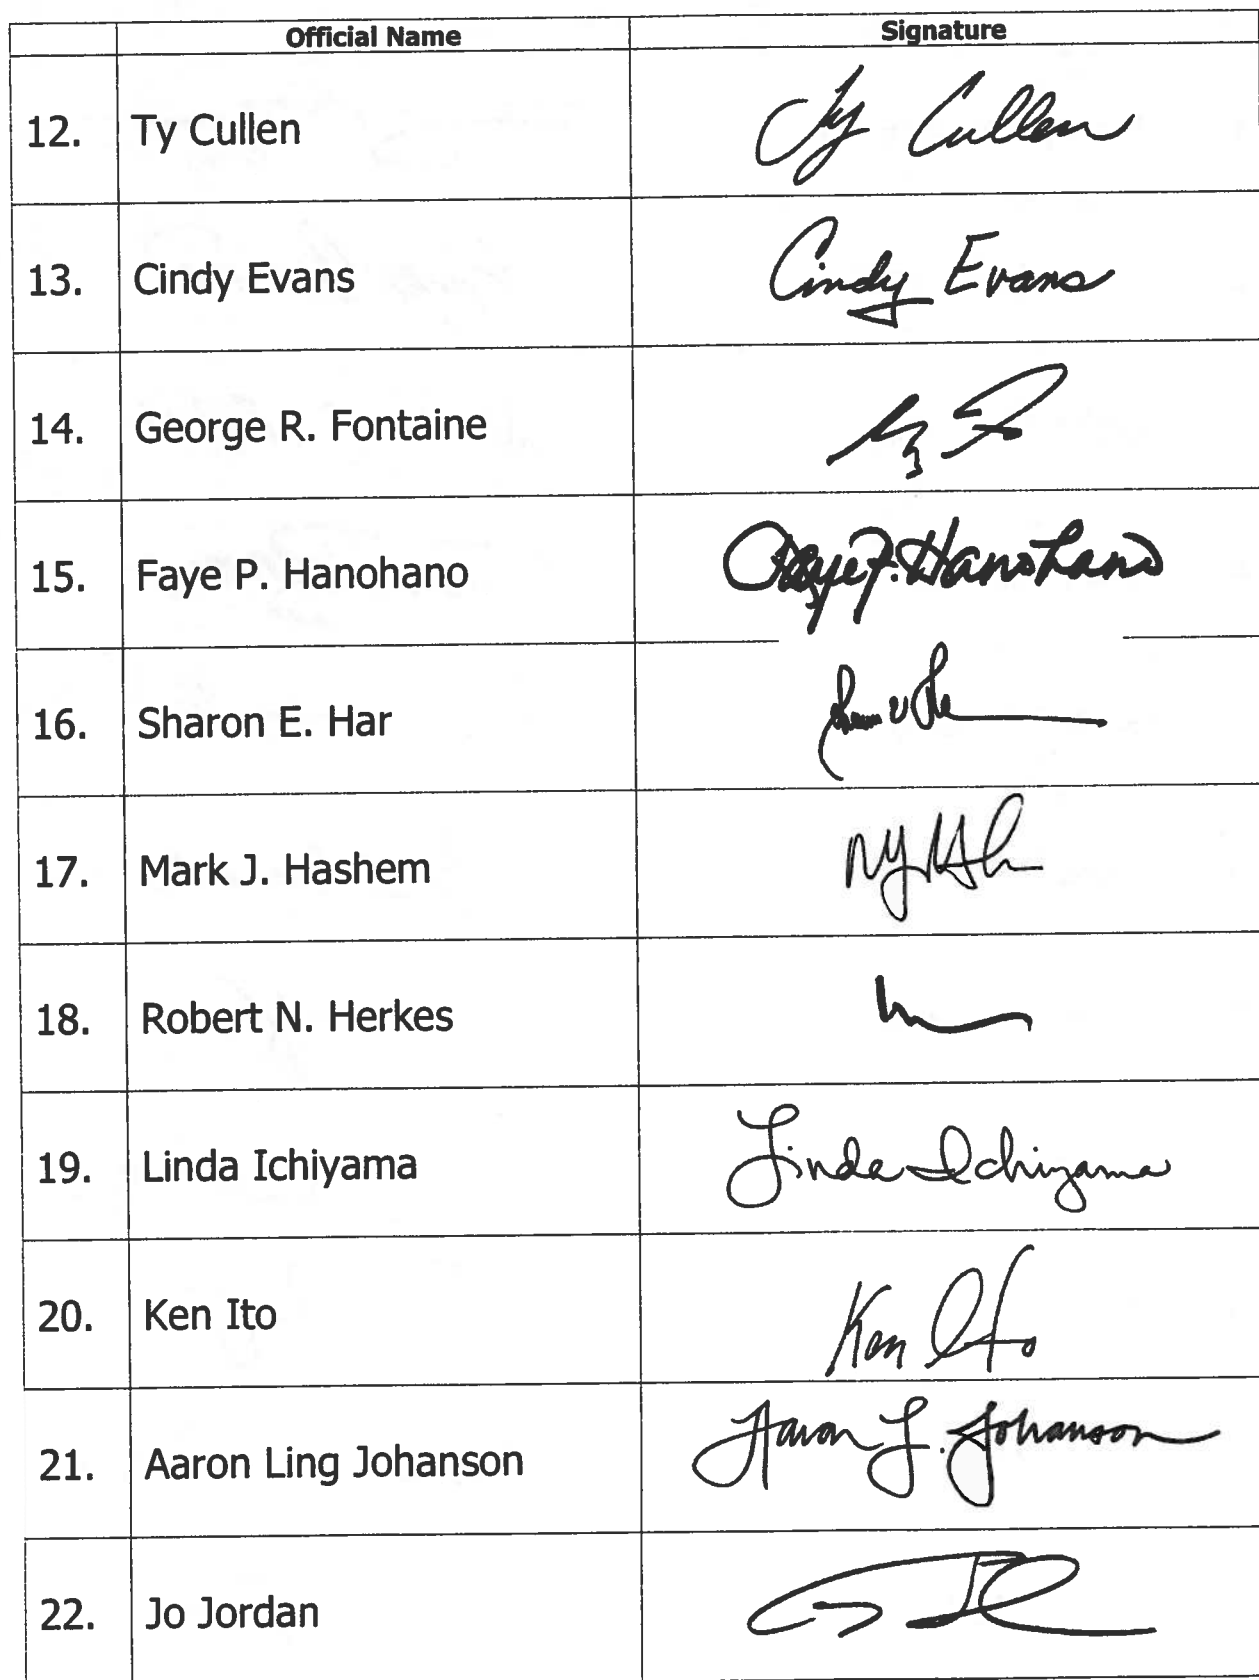 Official Name Signature
12. Ty Cullen Ty Cullen
13. Cindy Evans Cindy Evans
14. George R. Fontaine
15. Faye P. Hanohano Faye P. Hanohano
16. Sharon E. Har
17. Mark J. Hashem
18. Robert N. Herkes
19. Linda Ichiyama Linda Ichiyama
20. Ken Ito Ken Ito
21. Aaron Ling Johanson Aaron L. Johanson
22. Jo Jordan